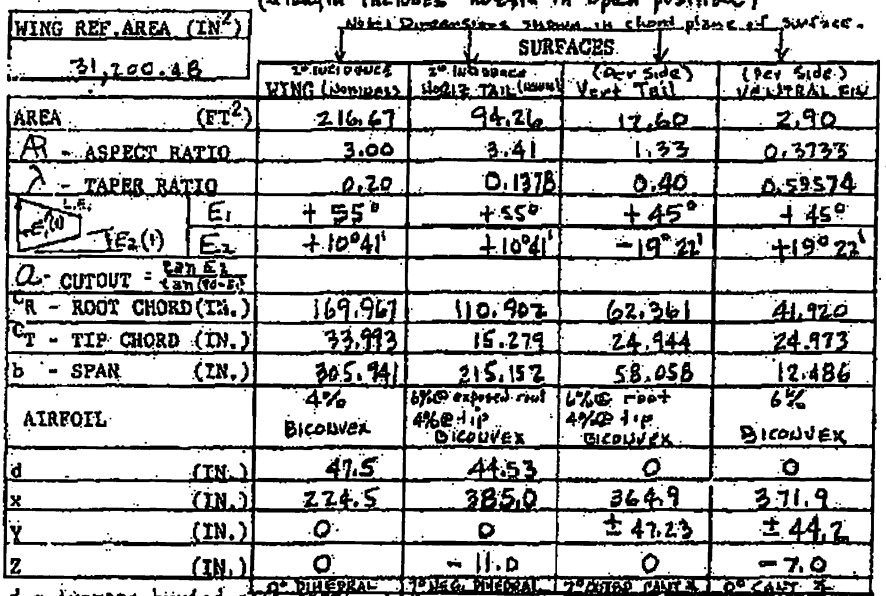 (Length includes nozzle in open position)
Note: Dimensions shown in chord plane of surface.
WING REF. AREA (IN²)
31,200.48
SURFACES
2° INCIDENCE WING (NOMINAL) 2° INCIDENCE HORIZ TAIL (Per Side) Vert Tail (Per Side) VENTRAL FIN
AREA (FT²) 216.67 94.26 17.60 2.90
AR - ASPECT RATIO 3.00 3.41 1.33 0.3733
λ - TAPER RATIO 0.20 0.1378 0.40 0.59574
L.E. E₁ +55° +55° +45° +45°
E₂(1) E₂ +10°41' +10°41' -19°22' +19°22'
a - CUTOUT = tan E₂ / tan (90-E₁)
CR - ROOT CHORD (IN.) 169.967 110.902 62.361 41.920
CT - TIP CHORD (IN.) 33.993 15.279 24.944 24.973
b - SPAN (IN.) 305.941 215.152 58.058 12.486
AIRFOIL 4% BICONVEX 6% @ exposed root 4% @ tip BICONVEX 6% @ root 4% @ tip BICONVEX 6% BICONVEX
d (IN.) 47.5 44.53 0 0
x (IN.) 224.5 385.0 364.9 371.9
Y (IN.) 0 0 ± 47.23 ± 44.2
Z (IN.) 0 -11.0 0 -7.0
0° DIHEDRAL 7° NEG. DIHEDRAL 7° OUTBD CANT 0° CANT